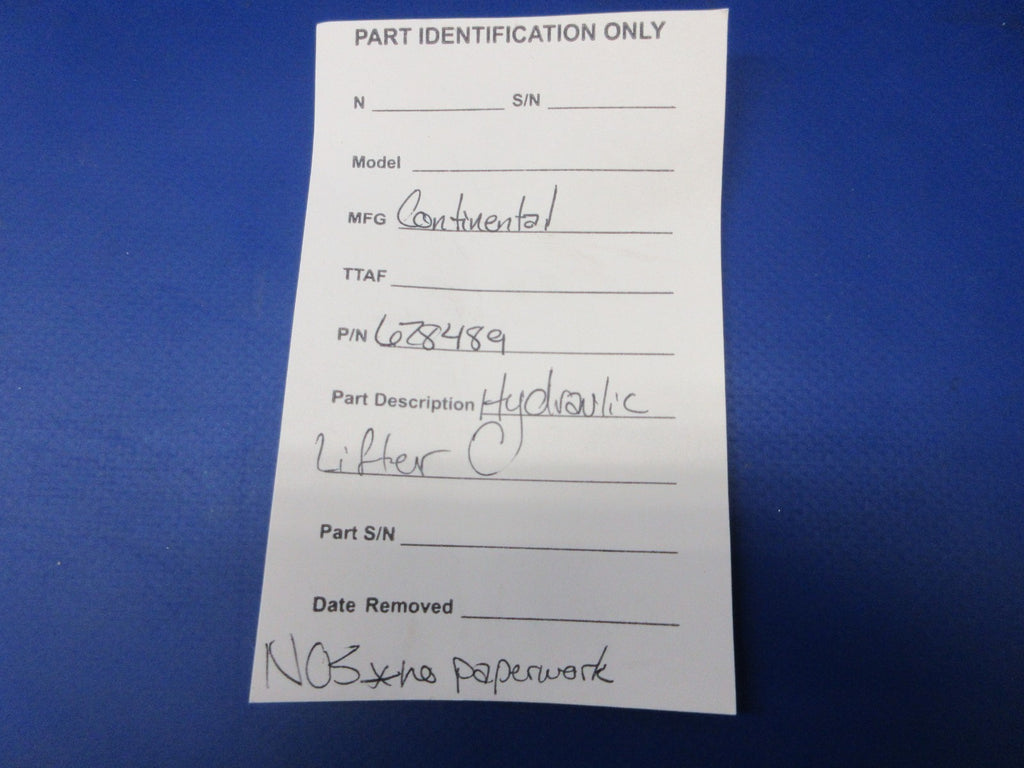 PART IDENTIFICATION ONLY
N S/N
Model
MFG Continental
TTAF
P/N 628489
Part Description Hydraulic
Lifter
Part S/N
Date Removed
NOS *no paperwork